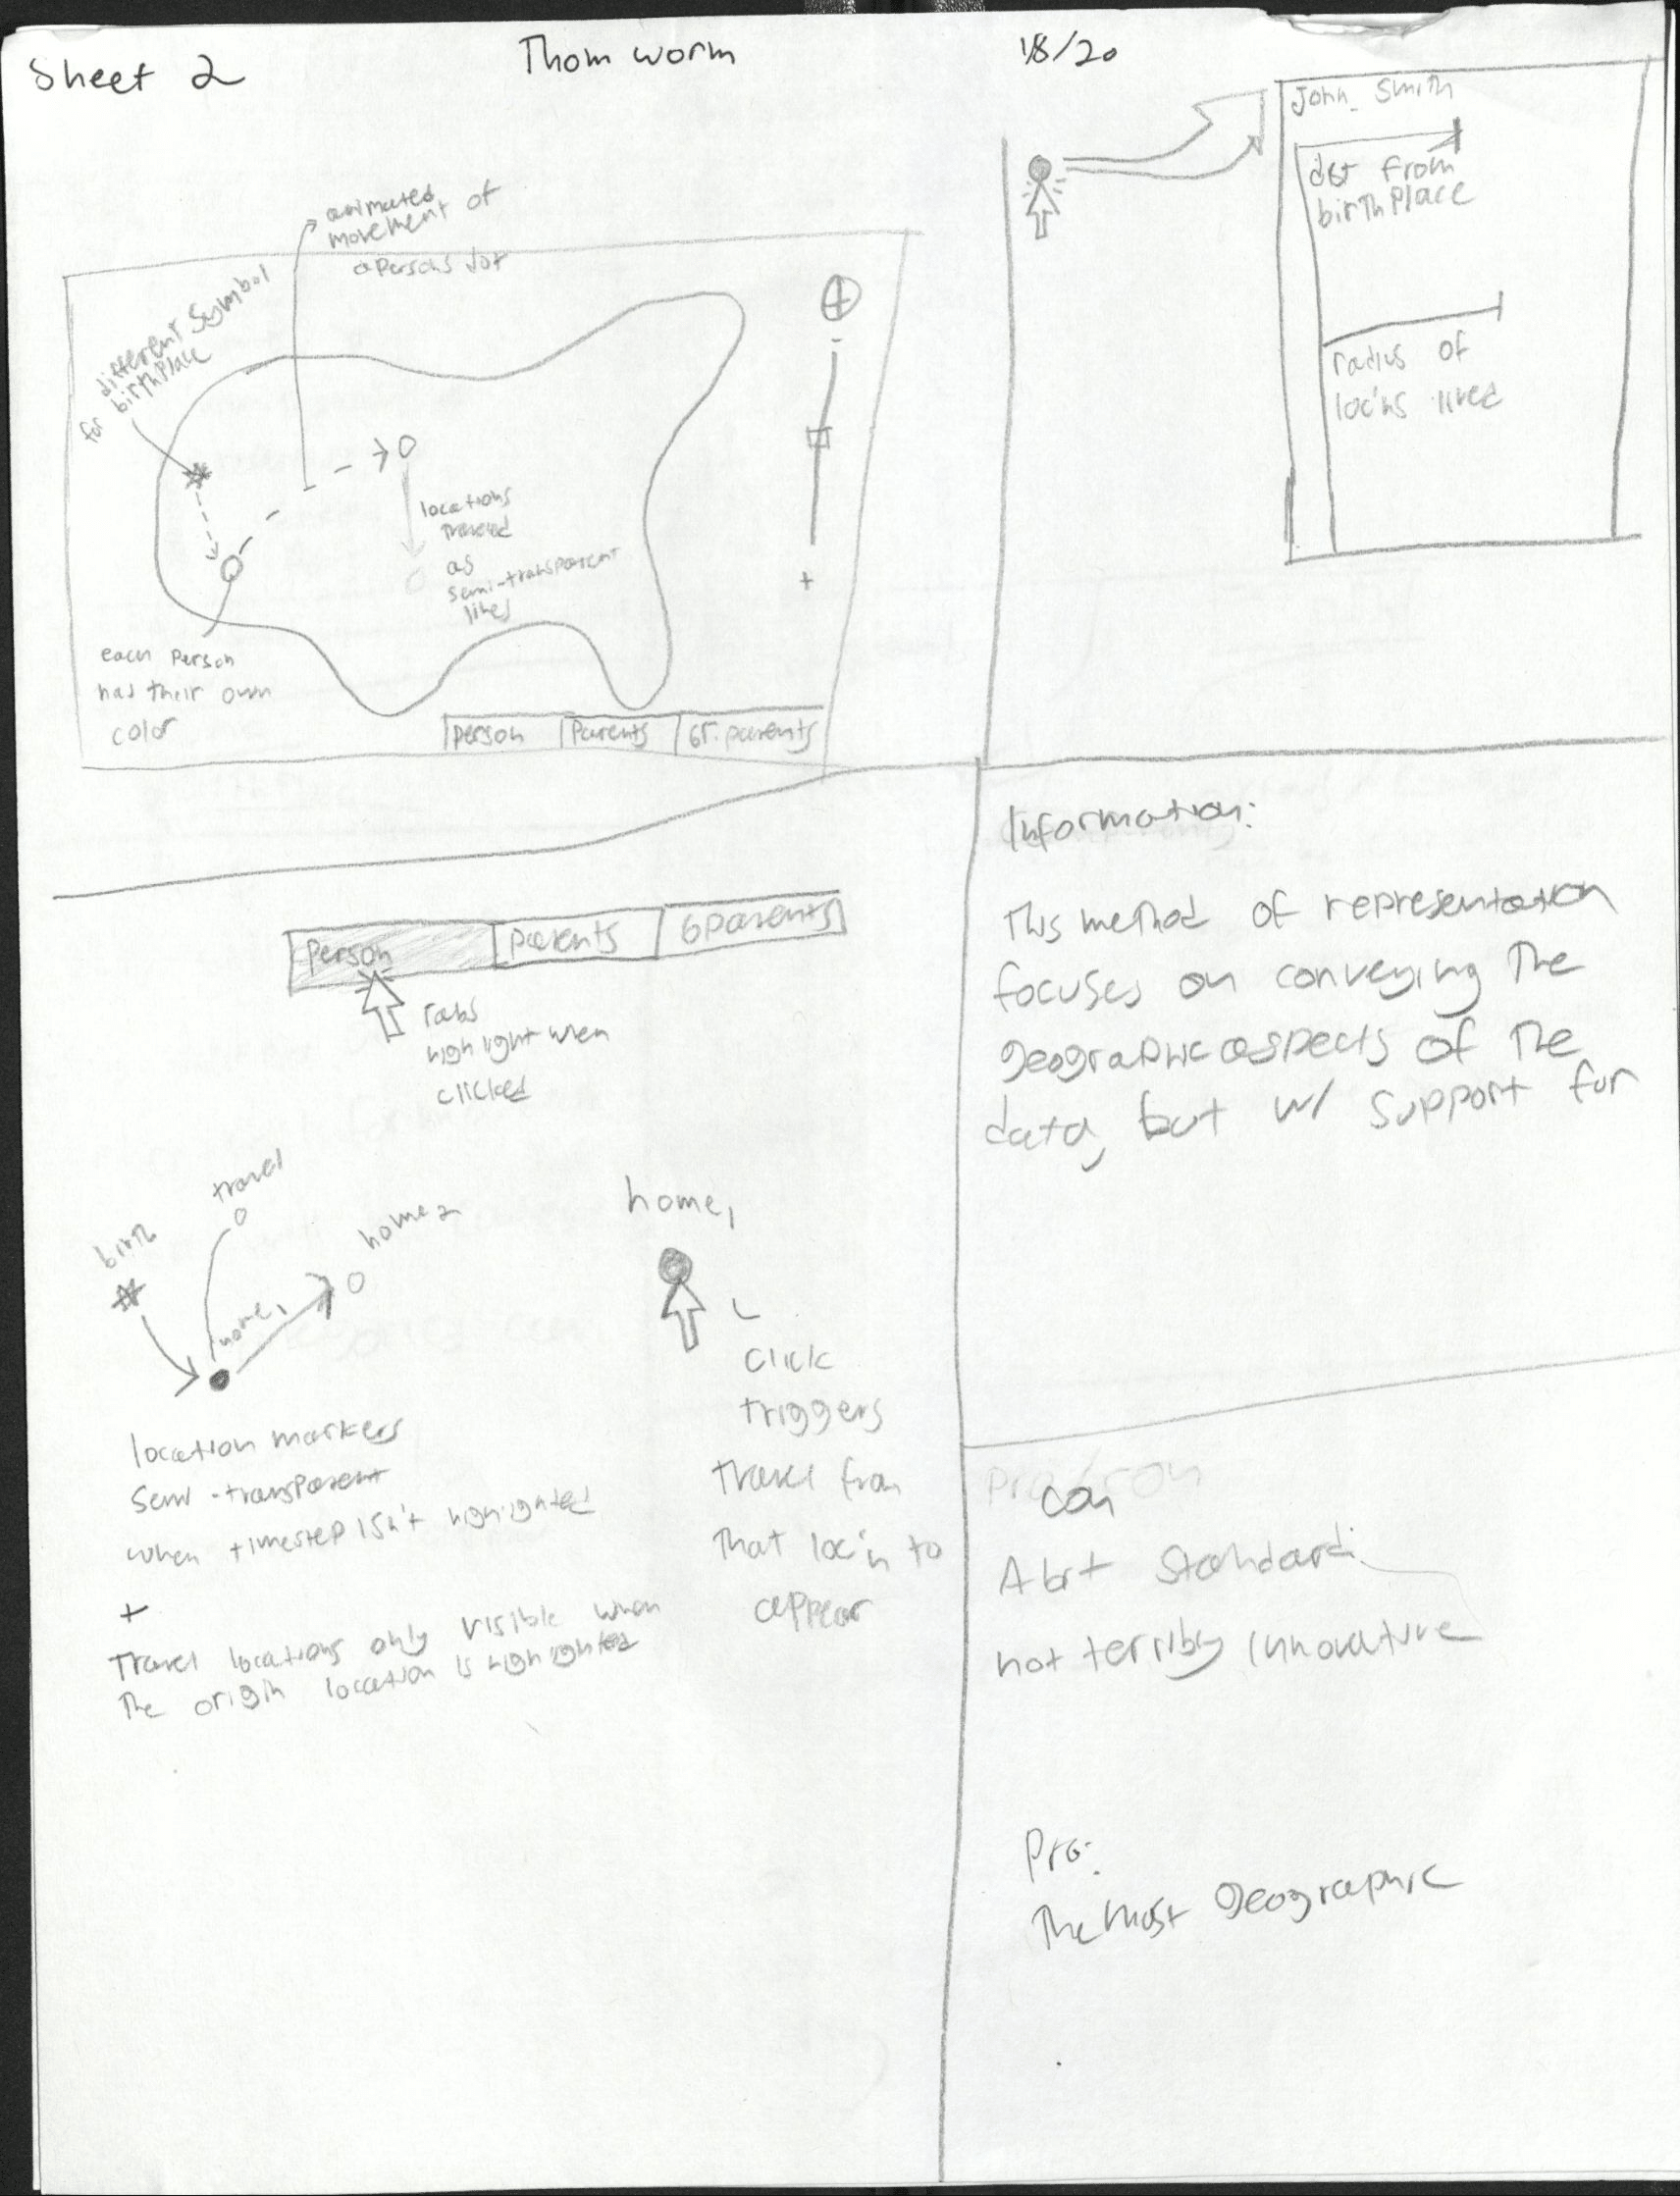 Sheet 2
Thom Worm
18/20
animated
movement of
a persons dot
different Symbol
for birthplace
locations
traveled
as
semi-transparent
lines
each Person
has their own
color
+
-
+
person
Parents
Gr. parents
John Smith
dist from
birthplace
radius of
loc'ns lived
person
parents
Gparents
Tabs
highlight when
clicked
birth
travel
home 1
home 2
location markers
semi-transparent
when timestep isn't highlighted
+
Travel locations only visible when
The origin location is highlighted
home 1
click
triggers
travel from
That loc'n to
appear
Information:
This method of representation
focuses on conveying The
geographic aspects of The
data, but w/ support for
Pro/con
con
A bit Standard
not terribly innovative
Pro:
The most geographic